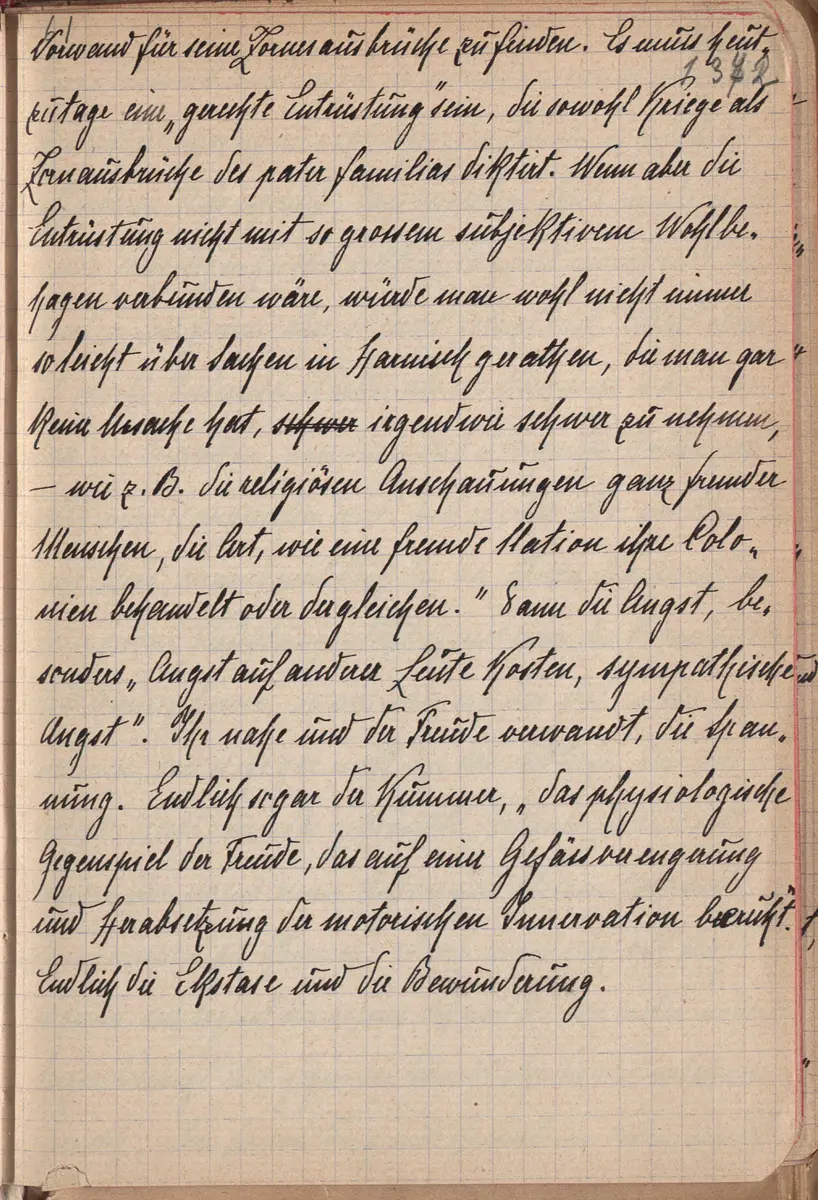 Vorwand für seine Zornesausbrüche zu finden. Es muss heut-
zutage eine „gerechte Entrüstung" sein, die sowohl Kriege als
Zornausbrüche des pater familias diktirt. Wenn aber die
Entrüstung nicht mit so grossem subjektivem Wohlbe-
hagen verbunden wäre, würde man wohl nicht immer
so leicht über Sachen in Harnisch gerathen, die man gar
keine Ursache hat, schwer irgendwie schwer zu nehmen,
— wie z. B. die religiösen Anschauungen ganz fremder
Menschen, die Art, wie eine fremde Nation ihre Colo-
nien behandelt oder dergleichen." Dann die Angst, be-
sonders „Angst auf anderer Leute Kosten, sympathische
Angst". Ihr nahe und der Freude verwandt, die Span-
nung. Endlich sogar der Kummer, „das physiologische
Gegenspiel der Freude, das auf einer Gefässverengerung
und Herabsetzung der motorischen Innervation beruht".
Endlich die Ekstase und die Bewunderung.